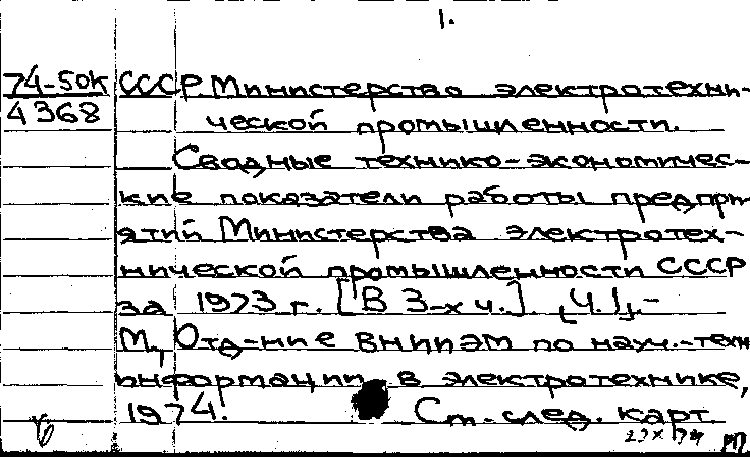 1.
74-50К СССР Министерство электротехни-
4368 ческой промышленности.
Сводные технико-экономичес-
кие показатели работы предпри
ятий Министерства электротех-
нической промышленности СССР
за 1973 г. [В 3-х ч.] [Ч.1].-
М., Отд-ние ВНИИЭМ по науч.-техн
информации в электротехнике,
1974. См. след. карт.
РП